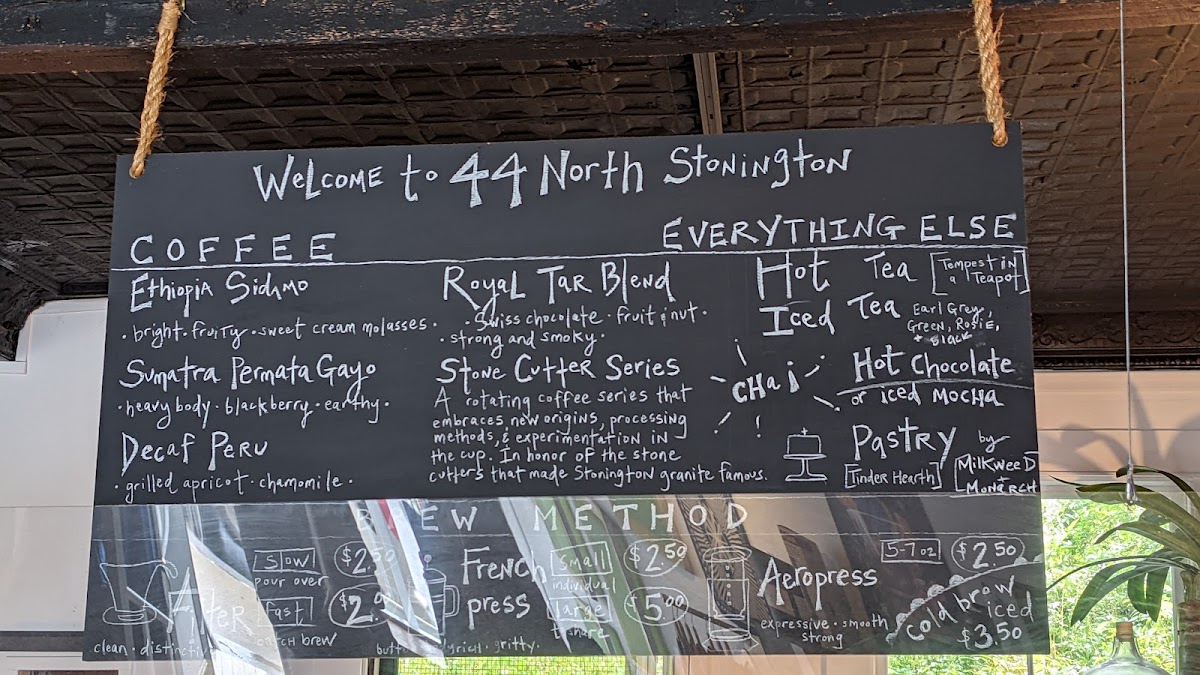 WELCOME to 44 North Stonington
COFFEE
Ethiopia Sidamo
· bright · fruity · sweet cream molasses ·
Sumatra Permata Gayo
· heavy body · blackberry · earthy ·
Decaf Peru
· grilled apricot · chamomile ·
Royal Tar Blend
· Swiss chocolate · fruit & nut ·
· strong and smoky ·
Stone Cutter Series
A rotating coffee series that
embraces new origins, processing
methods, & experimentation in
the cup. In honor of the stone
cutters that made Stonington granite famous.
EVERYTHING ELSE
Hot Tea [Tempest in
a Teapot]
Iced Tea Earl Grey,
Green, Rosie,
+ Black
CHai
Hot Chocolate
or iced MOCHA
Pastry by
[Tinder Hearth]
[Milkweed
+
Monarch
BREW METHOD
Filter
slow
pour over
$2.50
fast
batch brew
clean · distinctive
French
press
small
individual
$2.50
large
to share
$5.00
gritty ·
Aeropress
5-7 oz
$2.50
expressive · smooth
strong
cold brew
iced
$3.50